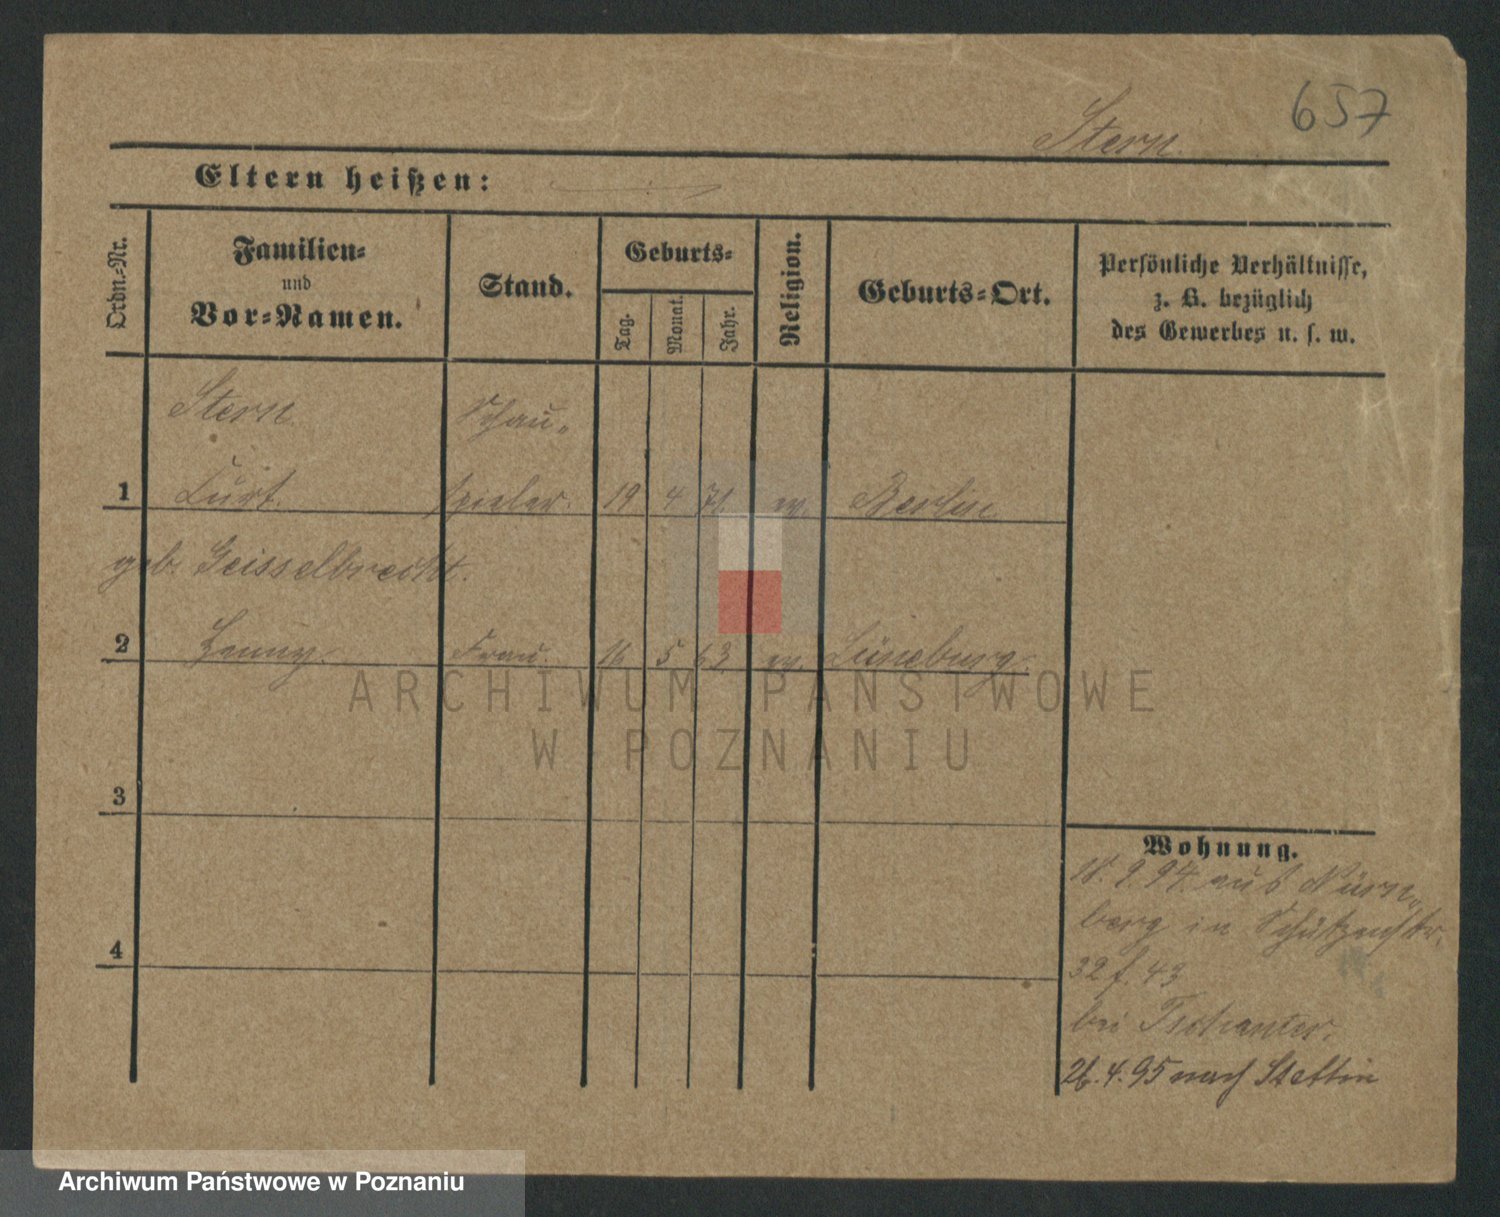 657
Stern.
Eltern heißen:
Ordn.-Nr.
Familien-
und
Vor-Namen.
Stand.
Geburts-
Tag.
Monat.
Jahr.
Religion.
Geburts-Ort.
Persönliche Verhältnisse,
z. B. bezüglich
des Gewerbes u. s. w.
Stern. Schau-
1 Curt. spieler. 19 4 71. ev. Berlin.
geb. Geisselbrecht.
2 Jenny. Frau. 16 5 63. ev. Lüneburg.
3
4
Wohnung.
18. 9. 94. aus Nürn-
berg in Schützenstr.
32 f. 43
bei Tschanter.
26. 4. 95 nach Stettin
ARCHIWUM PAŃSTWOWE
W POZNANIU
Archiwum Państwowe w Poznaniu